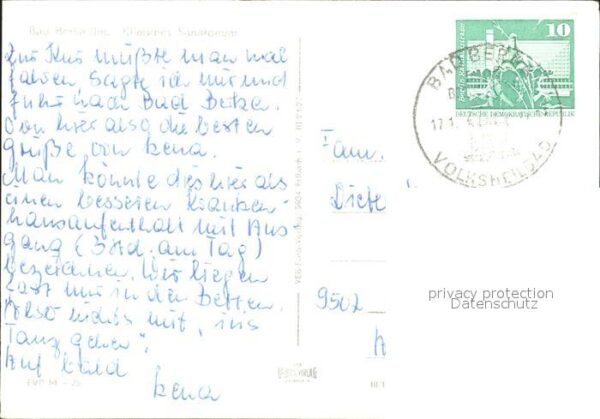 Bad Berka Ilm. Klinisches Sanatorium
Zur Kur müßte man mal
fahren sagte ich mir und
fuhr nach Bad Berka.
Von hier also die besten
Grüße von Lena.
Man könnte dies hier als
einen besseren Kranken-
hausaufenthalt mit Aus-
gang (3 Std. am Tag)
bezeichnen. Wir liegen
fast nur in den Betten.
Also nichts mit "ins
Tanz gehen".
Auf bald
Lena
Fam.
9502
10
DEUTSCHE DEMOKRATISCHE REPUBLIK
BAD BERKA
VOLKSHEILBAD
privacy protection
Datenschutz